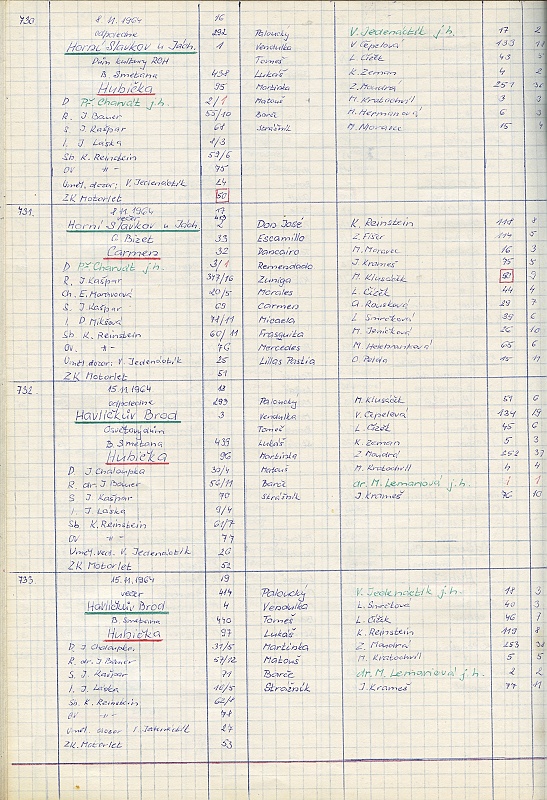 730 8.11.1964 16
odpoledne 292 Paloucký V. Jedenáctík j.h. 17 2
Horní Slavkov u Jách. 1 Vendulka V. Čepelová 133
Dům kultury ROH Tomeš L. Čížek 43 5
B. Smetana 438 Lukáš K. Zeman 4 2
Hubička 95 Martinka Z. Moudrá 251
D Př. Charvát j.h. 2/1 Matouš M. Kratochvíl 3 3
R. J. Bauer 55/10 Barče M. Heřmanová 6 3
S. J. Kašpar 61 Strážník M. Moravec 15 4
I. J. Láska 8/3
Sb. K. Reinstein 59/6
OV -"- 75
Uměl. dozor: V. Jedenáctík 24
ZK Motorlet 50
731. 8.11.1964 17
večer
Horní Slavkov u Jách. 2 Don José K. Reinstein 118 8
G. Bizet 33 Escamillo Z. Fišer 114 5
Carmen 32 Dancairo M. Moravec 16 3
D Př. Charvát j.h. 3/1 Remendado J. Krameš 75 5
R. J. Kašpar 347/16 Zuniga M. Klusáček 50 9
Ch. E. Moravová 20/5 Morales L. Čížek 44 4
S. J. Kašpar 69 Carmen 29 7
I. D. Mikšová 71/11 Micaela L. Smrčková 39 6
Sb K. Reinstein 60/11 Frasquita M. Jeníčková 26 10
OV. -"- 76 Mercedes 65 6
Uměl. dozor: V. Jedenáctík 25 Lillas Pastia O. Polda 15 11
ZK Motorlet 51
732 15.11.1964 18
odpoledne 293 Paloucký M. Klusáček 51 6
Havlíčkův Brod 3 Vendulka V. Čepelová 134 19
Osvětový dům Tomeš L. Čížek 45 6
B. Smetana 439 Lukáš K. Zeman 5 3
Hubička 96 Martinka Z. Moudrá 252 37
D J. Chaloupka 30/4 Matouš M. Kratochvíl 4 4
R dr. J. Bauer 56/11 Barče dr. M. Lemariová j.h. 1 1
S J. Kašpar 70 Strážník J. Krameš 76 10
I. J. Láska 9/4
Sb K. Reinstein 61/7
OV -"- 77
Uměl. ved. V. Jedenáctík 26
ZK Motorlet 52
733 15.11.1964 19
večer 414 Paloucký V. Jedenáctík j.h. 18 3
Havlíčkův Brod 4 Vendulka L. Smrčková 40 3
B. Smetana 440 Tomeš L. Čížek 46 7
Hubička 97 Lukáš K. Reinstein 119 8
D. J. Chaloupka 31/5 Martinka Z. Moudrá 253 38
R. dr. J. Bauer 57/12 Matouš M. Kratochvíl 5 5
S. J. Kašpar 71 Barče dr. M. Lemariová j.h. 2 2
I. J. Láska 10/5 Strážník J. Krameš 77 11
Sb. K. Reinstein 62/8
OV -"- 78
Uměl. dozor V. Jedenáctík 27
ZK. Motorlet 53